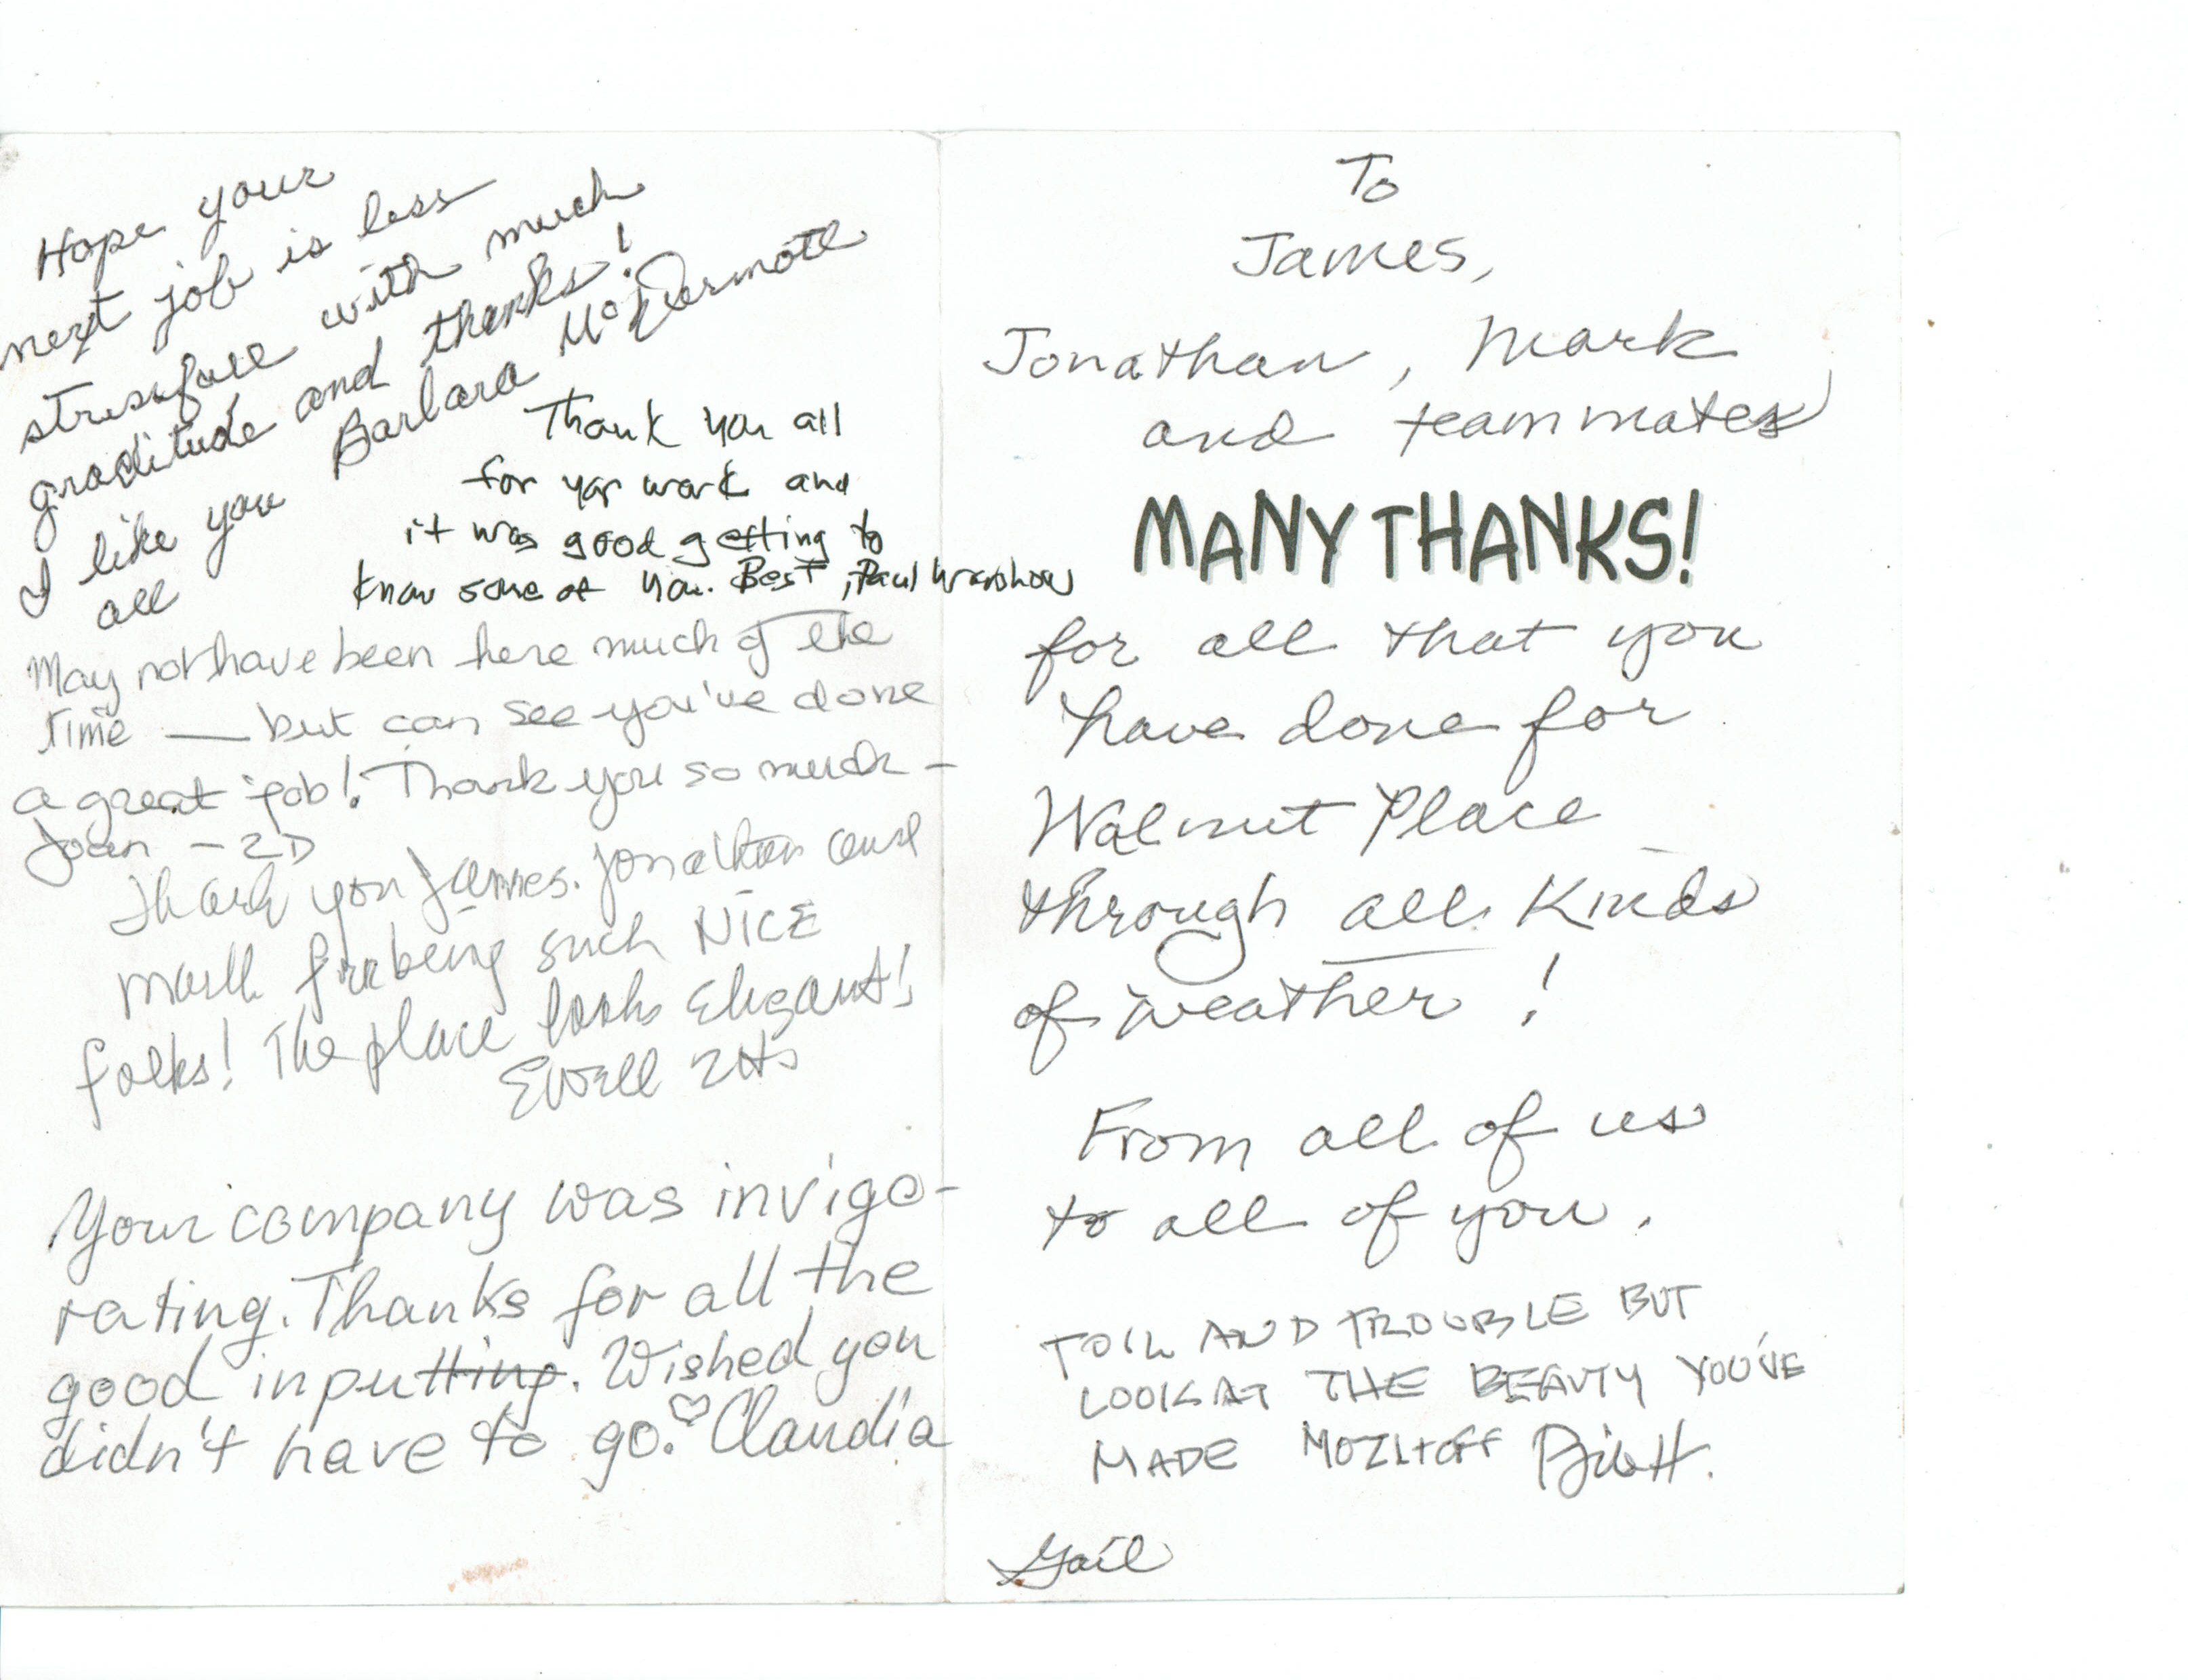 Hope your
next job is less
stressfull with much
graditude and thanks!
I like you Barbara McDermott
all
Thank you all
for your work and
it was good getting to
know some of you. Best, Paul
May not have been here much of the
time — but can see you've done
a great job! Thank you so much –
Joan – 2D
Thank you James. Jonathan and
Mark for being such NICE
folks! The place looks Elegant!
2H
Your company was invigo-
rating. Thanks for all the
good inputting. Wished you
didn't have to go. ♡ Claudia
To
James,
Jonathan, Mark
and teammates
MANY THANKS!
for all that you
have done for
Walnut Place
through all kinds
of weather!
From all of us
to all of you.
TOIL AND TROUBLE BUT
LOOK AT THE BEAUTY YOU'VE
MADE MOZLTOFF
Gail